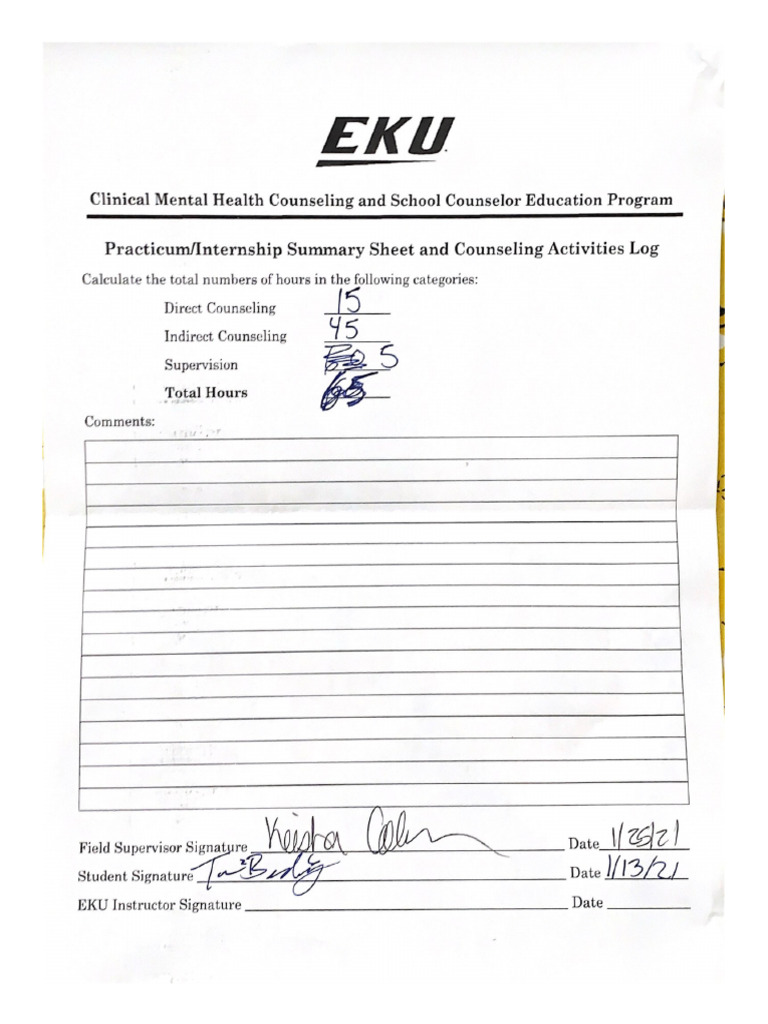 EKU
Clinical Mental Health Counseling and School Counselor Education Program
Practicum/Internship Summary Sheet and Counseling Activities Log
Calculate the total numbers of hours in the following categories:
Direct Counseling 15
Indirect Counseling 45
Supervision 5
Total Hours 65
Comments:
Field Supervisor Signature Keisha Date 1/25/21
Student Signature Date 1/13/21
EKU Instructor Signature Date